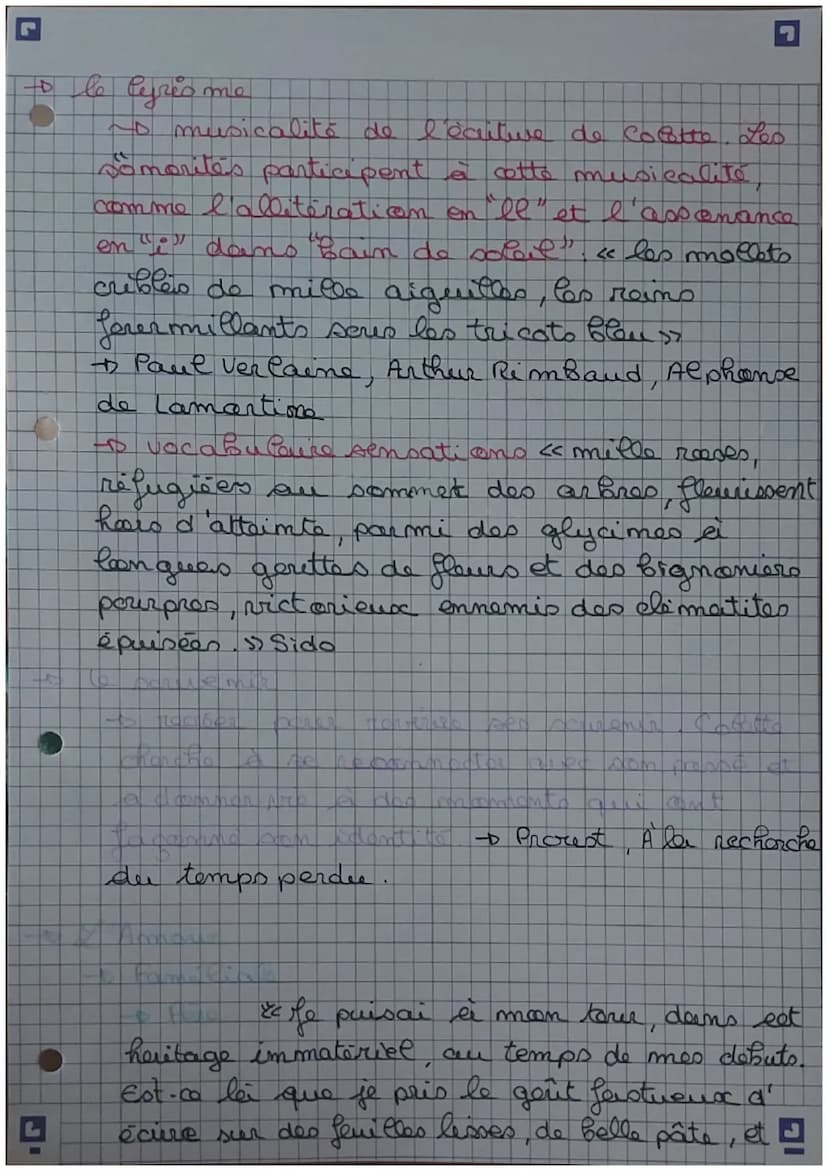 → le lyrisme
→ musicalité de l'écriture de Colette. Les
sonorités participent à cette musicalité,
comme l'allitération en "ll" et l'assonance
en "i" dans "Bain de soleil". << les mollets
criblés de mille aiguilles, les reins
fourmillants sous les tricots bleu >>
→ Paul Verlaine, Arthur Rimbaud, Alphonse
de Lamartine
→ vocabulaire sensations << mille roses,
réfugiées au sommet des arbres, fleurissent
hors d'atteinte, parmi des glycines à
longues gouttes de fleurs et des bignoniers
pourpres, victorieux ennemis des clématites
épuisées. >> Sido
→ le souvenir
→ pour ses souvenir. Colette
cherche à se reconnecter avec son passé et
à donner vie à des moments qui ont
façonné son identité → Proust, À la recherche
du temps perdu.
→ L'Amour
→ Familiale
→ << Je puisai à mon tour, dans cet
héritage immatériel, au temps de mes débuts.
Est-ce là que je pris le goût fastueux d'
écrire sur des feuilles lisses, de belle pâte, et